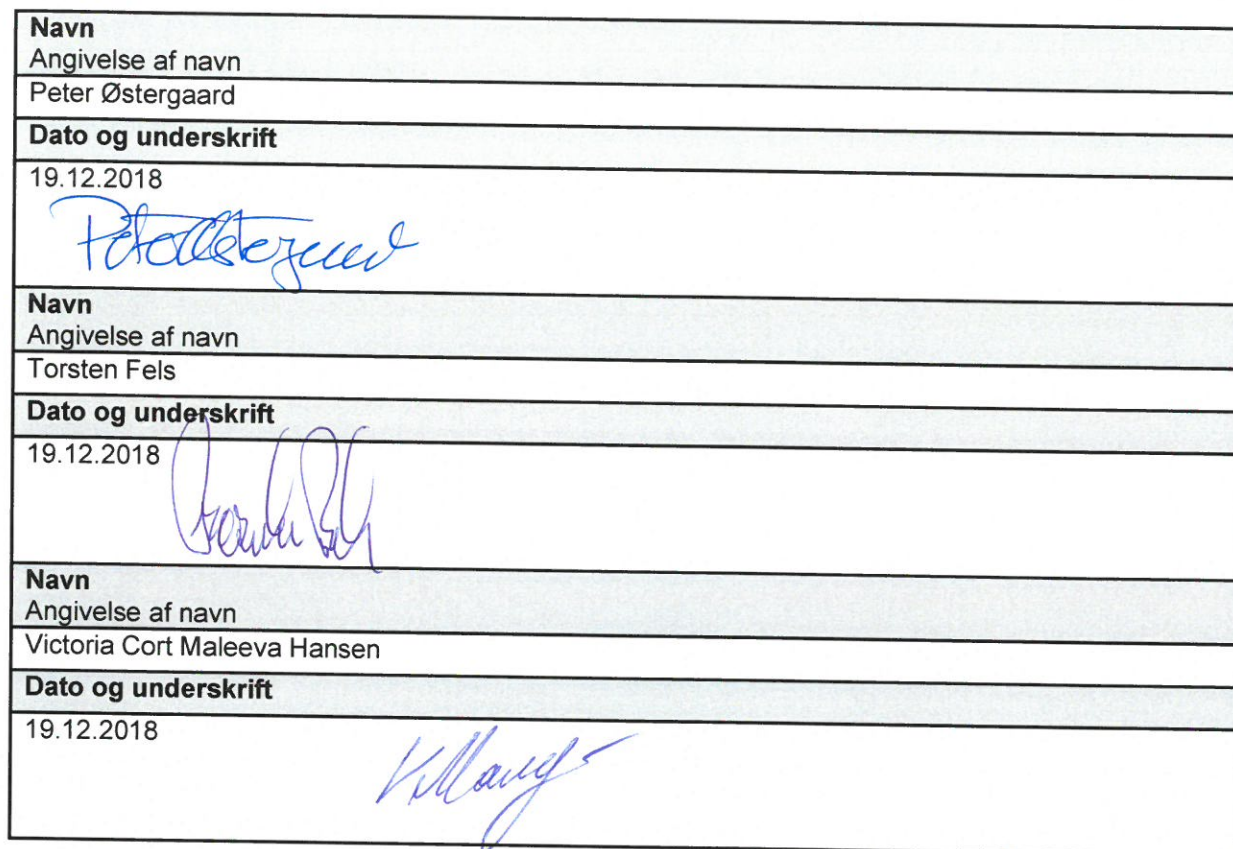 Navn
Angivelse af navn
Peter Østergaard
Dato og underskrift
19.12.2018
Navn
Angivelse af navn
Torsten Fels
Dato og underskrift
19.12.2018
Navn
Angivelse af navn
Victoria Cort Maleeva Hansen
Dato og underskrift
19.12.2018